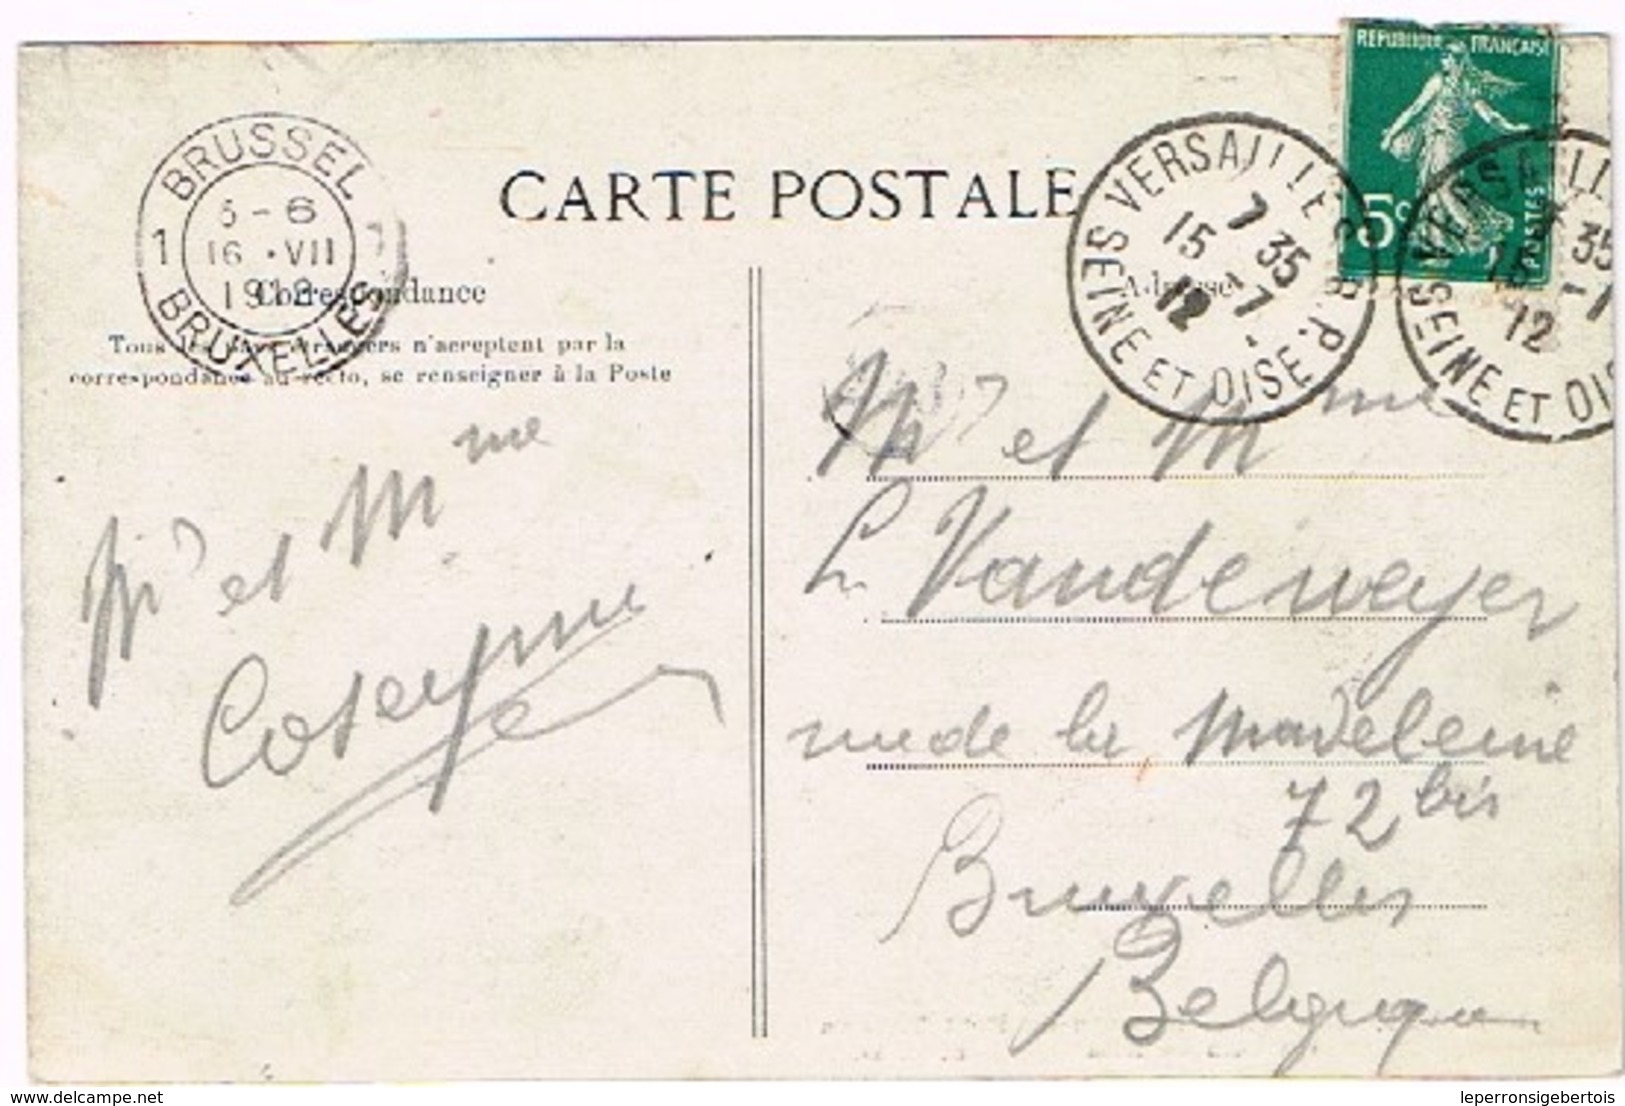 RÉPUBLIQUE FRANÇAISE
5c
POSTES
BRUSSEL
5-6
1
16 · VII
1912
BRUXELLES
CARTE POSTALE
VERSAILLES R.P.
7 35
15 - 7
12
SEINE ET OISE
VERSAILL
35
15 -
12
SEINE ET OIS
Correspondance
Adresse
Tous les pays étrangers n'acceptent pas la
correspondance au recto, se renseigner à la Poste
Mr et Mme
Mr et Mme
L Vandeweyer
rue de la Madeleine
72 bis
Bruxelles
Belgique
delcampe.net
leperronsigebertois